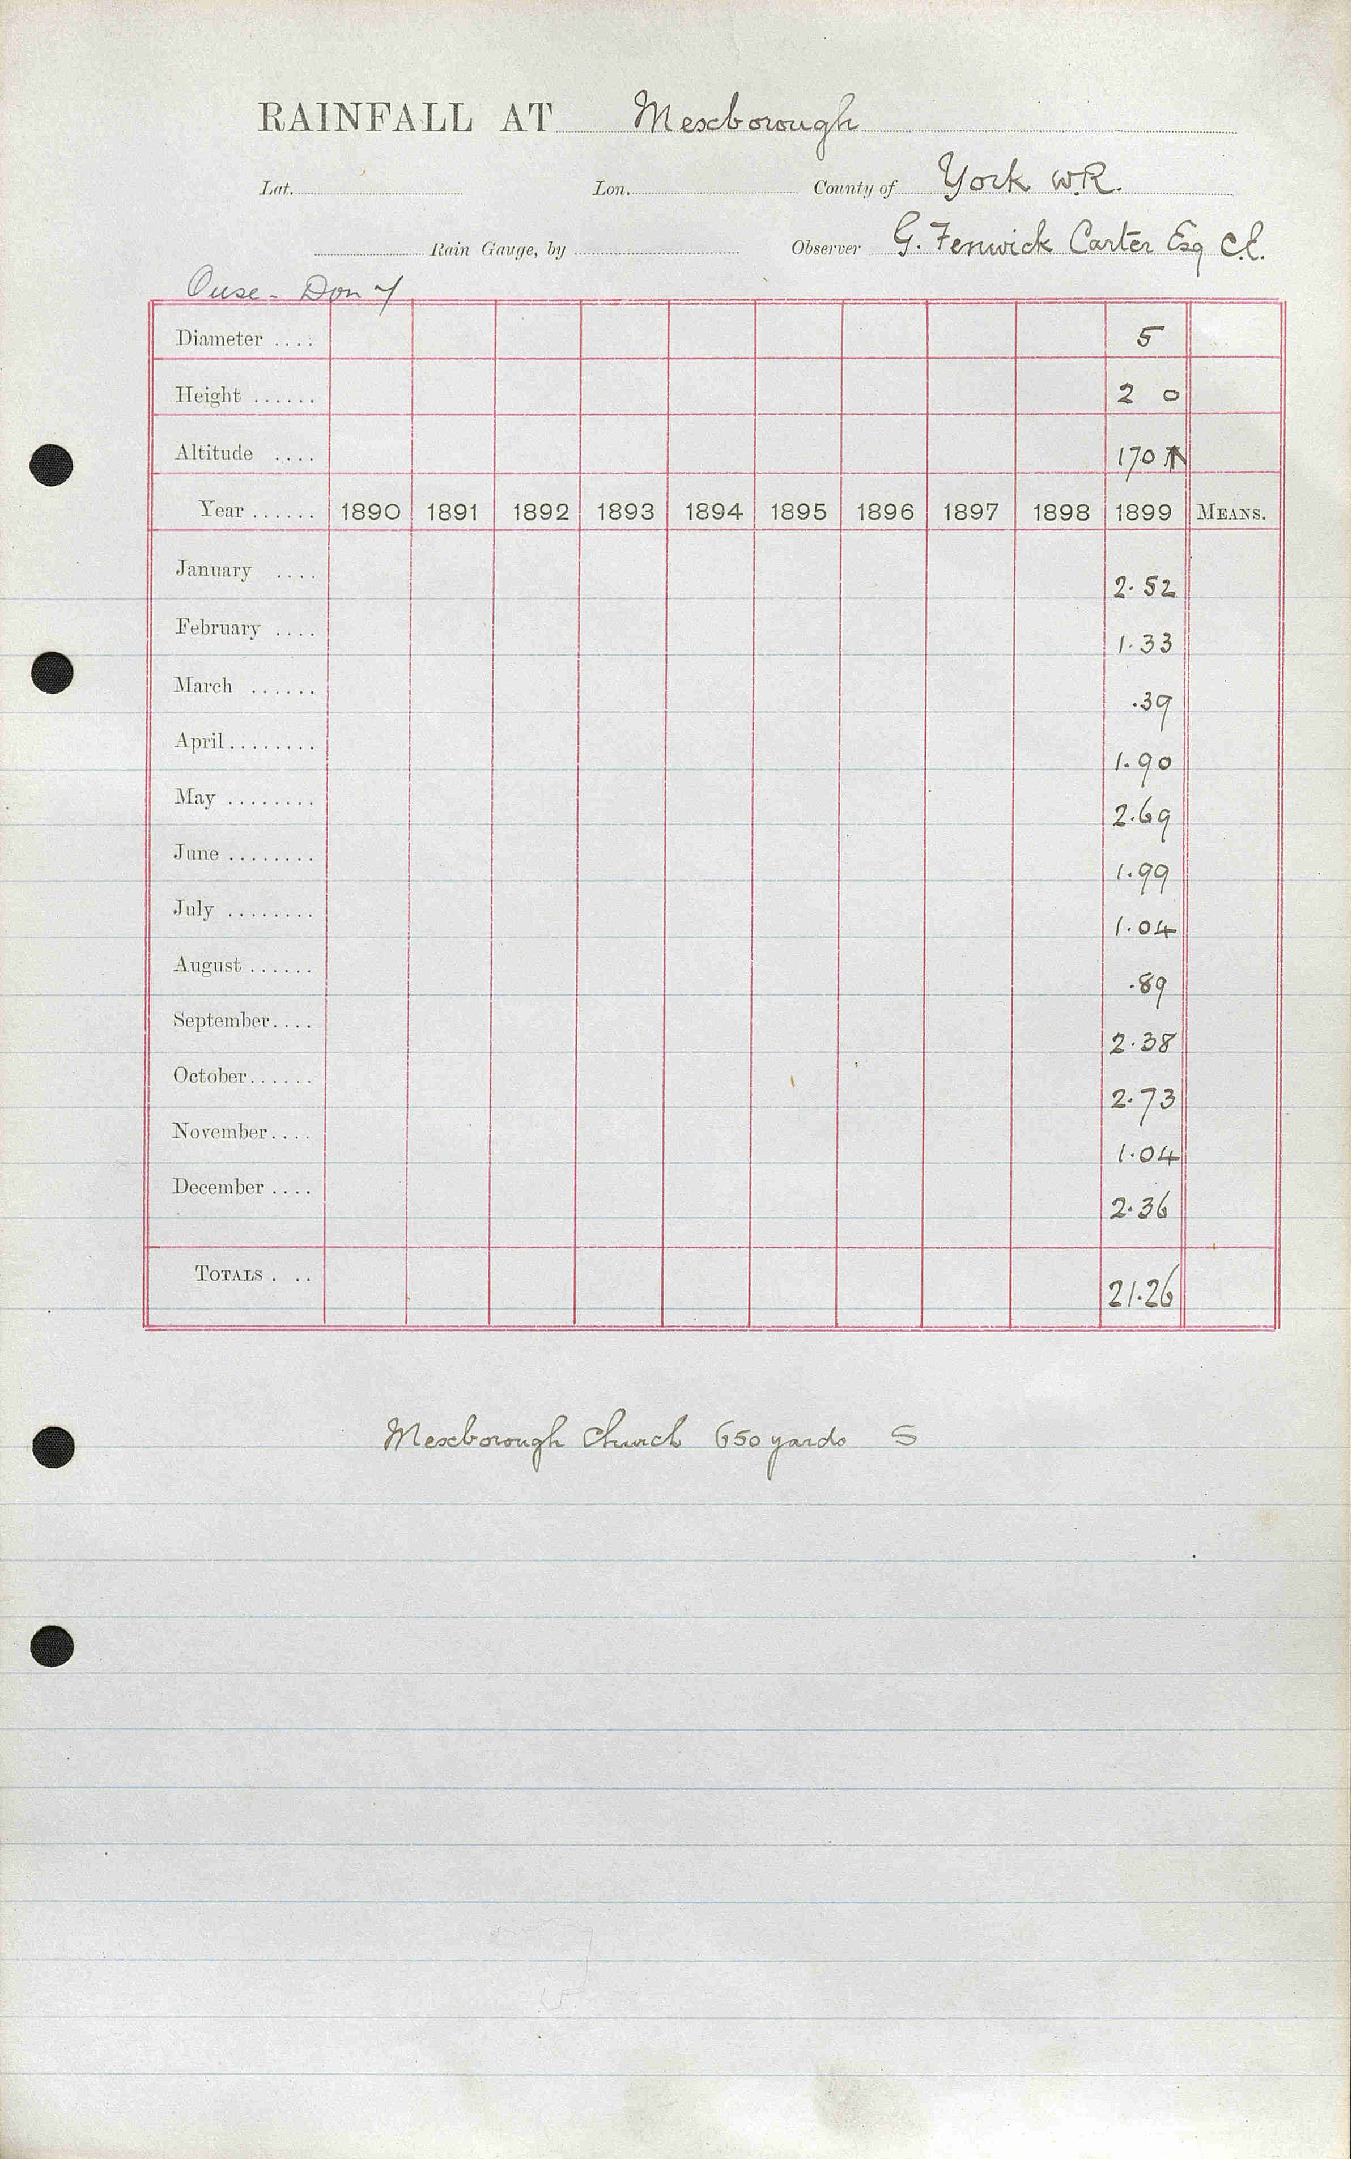 RAINFALL AT Mexborough
Lat. Lon. County of York W.R.
Rain Gauge, by Observer G. Fenwick Carter Esq C.E.
Ouse - Don
Diameter .... 5
Height ...... 2 0
Altitude .... 170
Year ...... 1890 1891 1892 1893 1894 1895 1896 1897 1898 1899 MEANS.
January .... 2.52
February .... 1.33
March ...... .39
April ........ 1.90
May ........ 2.69
June ........ 1.99
July ........ 1.04
August ...... .89
September .... 2.38
October ...... 2.73
November .... 1.04
December .... 2.36
TOTALS . .. 21.26
Mexborough Church 650 yards S